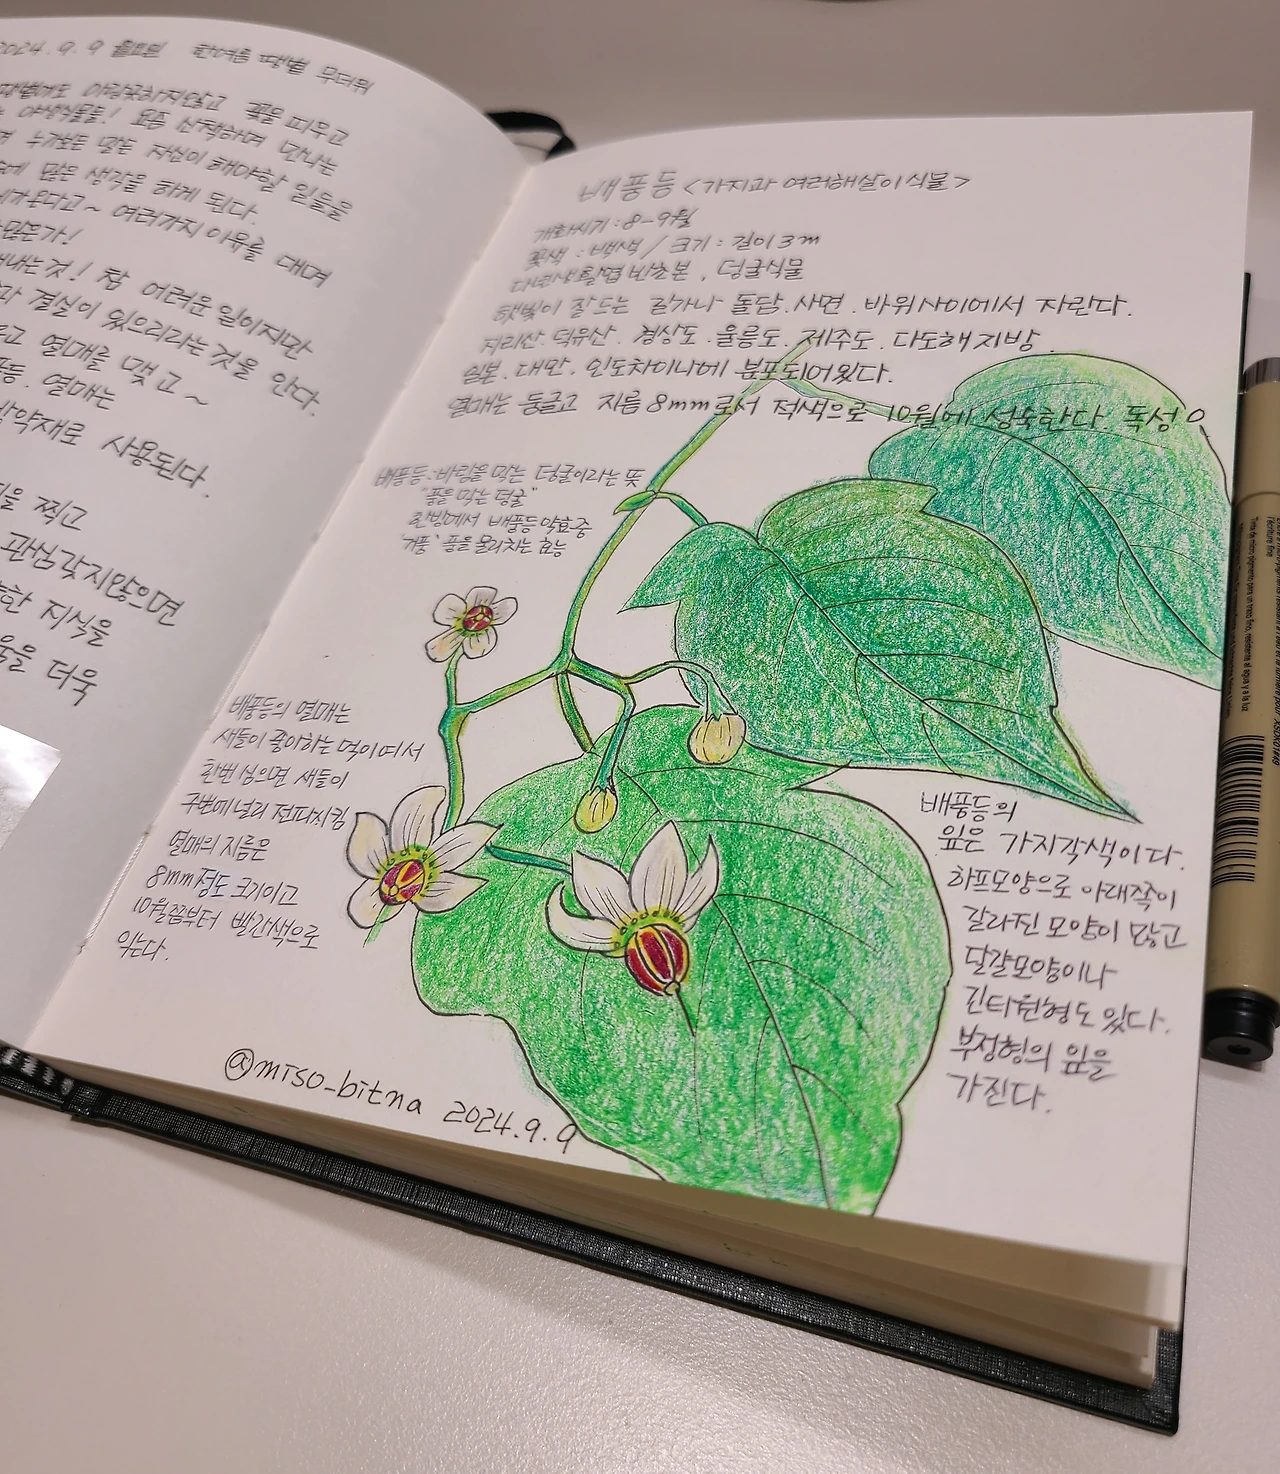 2024.9.9 월요일 한여름 땡볕 무더위
땡볕에도 아랑곳하지않고 꽃을 피우고
야생식물들! 요즘 산책하며 만나는
누가보든 말든 자신이 해야할 일들을
많은 생각을 하게 된다.
여러가지 이유를 대며
않은가!
내는것! 참 어려운 일이지만
결실이 있으리라는것을 안다.
열매를 맺고~
열매는
약재로 사용된다.
찍고
관심갖지않으면
지식을
더욱
배풍등 <가지과 여러해살이식물>
개화시기 : 8-9월
꽃색 : 백색 / 크기 : 길이 3m
다년생활엽반초본, 덩굴식물
햇빛이 잘드는 길가나 돌담.사면.바위사이에서 자란다.
지리산.덕유산.경상도.울릉도.제주도.다도해지방
일본.대만.인도차이나에 분포되어있다.
열매는 둥글고 지름 8mm로서 적색으로 10월에 성숙한다. 독성O
배풍등:바람을 막는 덩굴이라는 뜻
"풍을 막는 덩굴"
한방에서 배풍등 약효중
'거풍' 풍을 물리치는 효능
배풍등의 열매는
새들이 좋아하는 먹이여서
한번 심으면 새들이
주변에 널리 전파시킴
열매의 지름은
8mm정도 크기이고
10월쯤부터 빨간색으로
익는다.
배풍등의
잎은 가지각색이다.
하프모양으로 아래쪽이
갈라진 모양이 많고
달걀모양이나
긴타원형도 있다.
부정형의 잎을
가진다.
@miso_bitna 2024.9.9